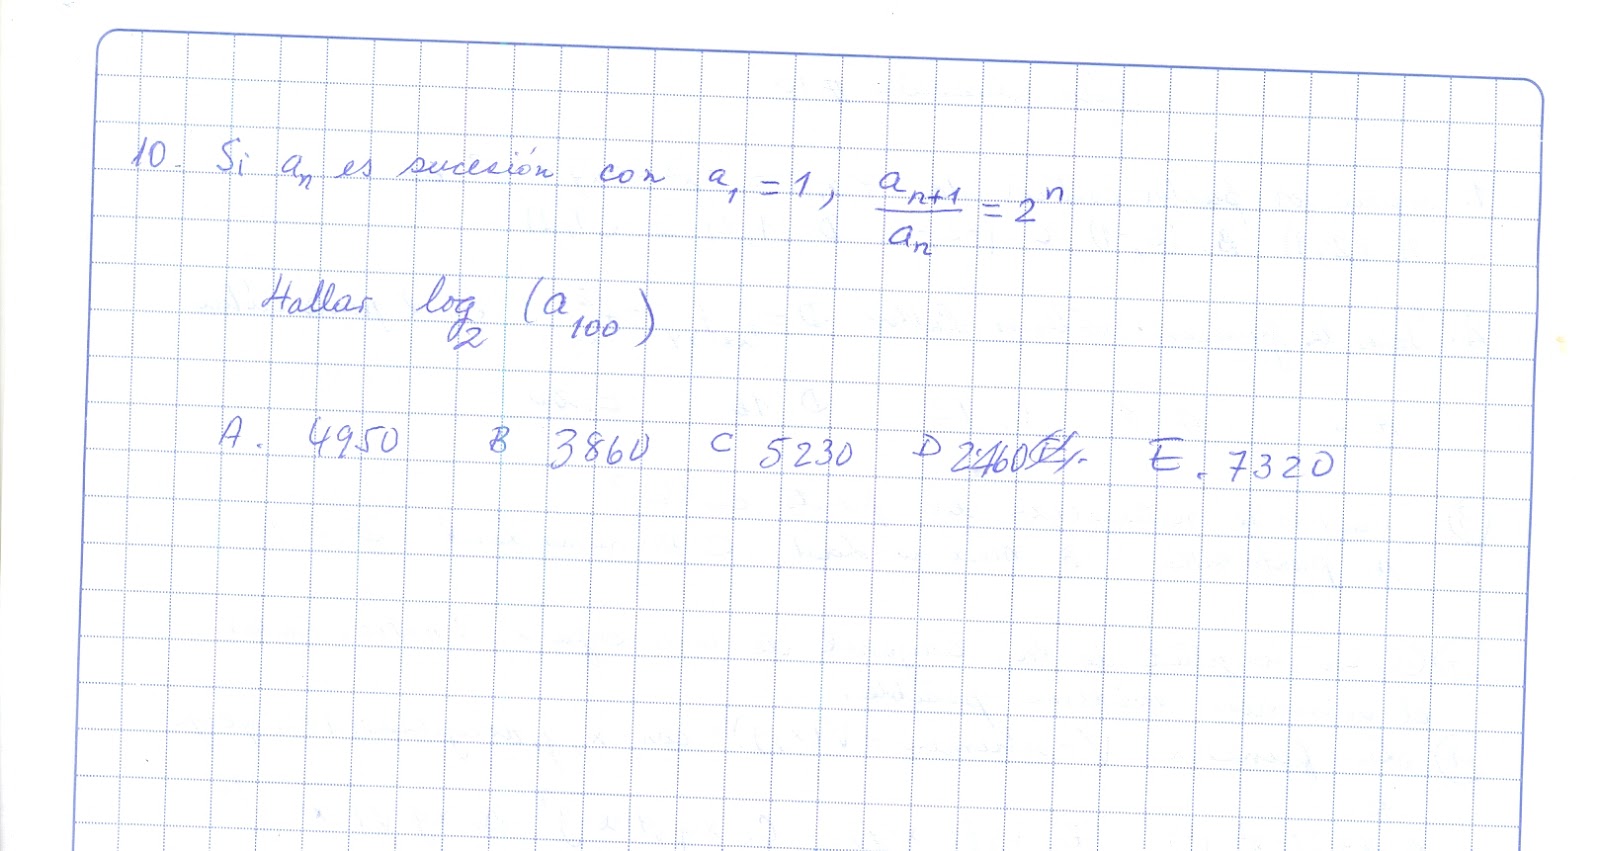 10. Si aₙ es sucesión con a₁ = 1, aₙ₊₁/aₙ = 2ⁿ
Hallar log₂ (a₁₀₀)
A. 4950 B 3860 C 5230 D 2460 E. 7320